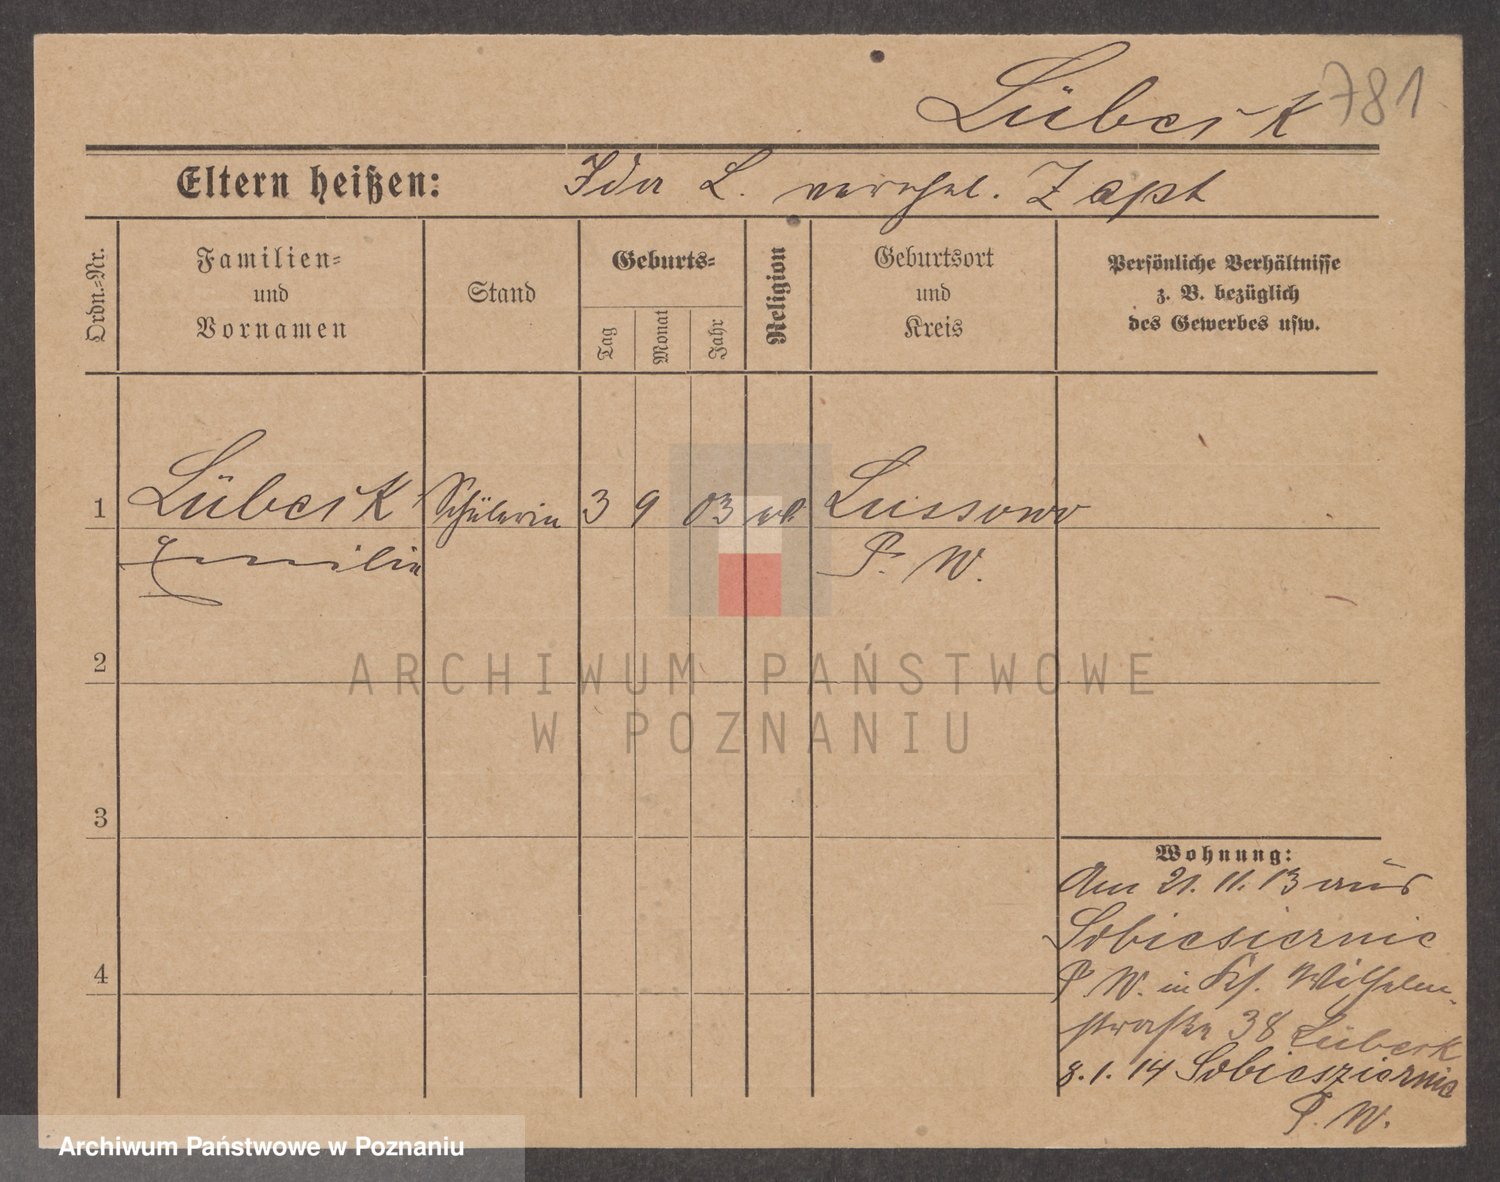 Lübeck 781
Eltern heißen: Ida L. verehel. Zapt
Ordn.-Nr.
Familien-
und
Vornamen
Stand
Geburts-
Tag
Monat
Jahr
Religion
Geburtsort
und
Kreis
Persönliche Verhältnisse
z. B. bezüglich
des Gewerbes usw.
1 Lübeck Schülerin 3 9 03 Lussowo
P. W.
2
3
4
Wohnung:
Am 21. 11. 13 aus
Sobiesiernie
P. W. in Wilhelm-
straße 38 Lübeck
8. 1. 14 Sobiesziernie
P. W.
ARCHIWUM PAŃSTWOWE
W POZNANIU
Archiwum Państwowe w Poznaniu